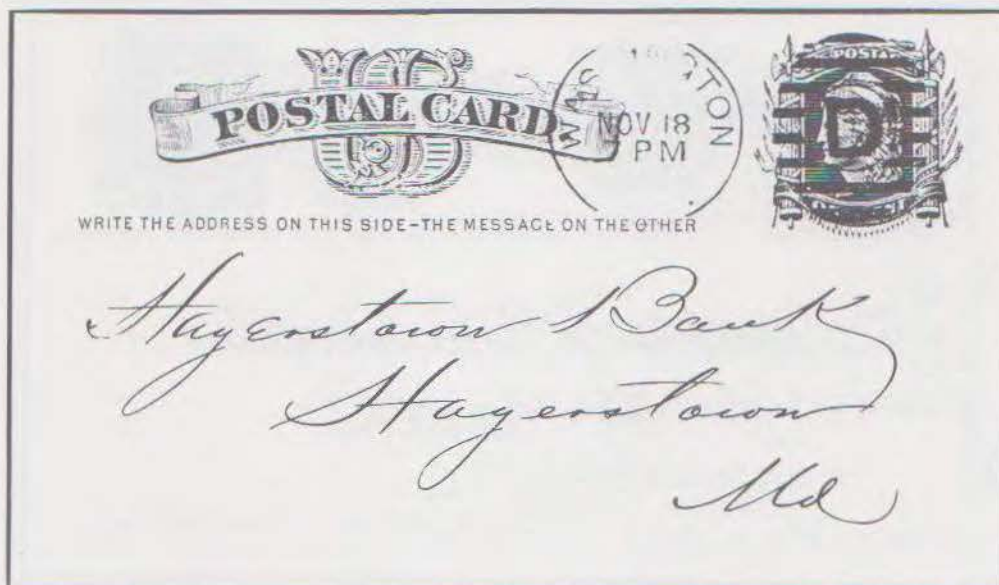 US
POSTAL CARD
NOV 18
PM
D
WRITE THE ADDRESS ON THIS SIDE-THE MESSAGE ON THE OTHER
Hagerstown Bank
Hagerstown
Md